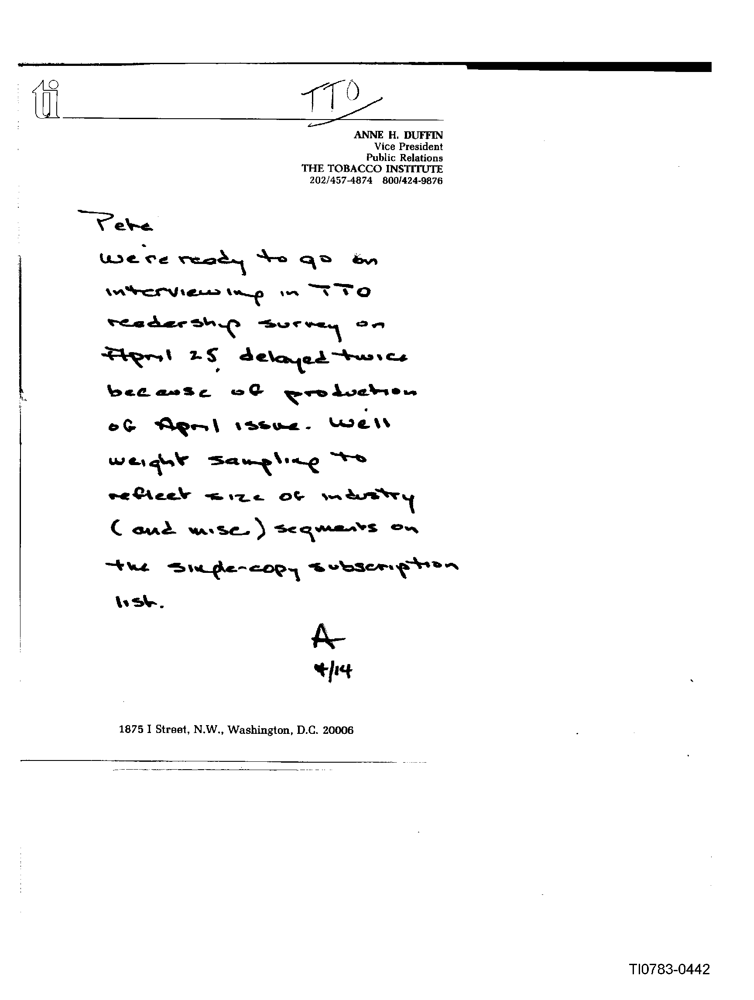 ti
TTO
ANNE H. DUFFIN
Vice President
Public Relations
THE TOBACCO INSTITUTE
202/457-4874 800/424-9876
Pete
We're ready to go on
interviewing in TTO
readership survey on
April 25, delayed twice
because of production
of April issue. We'll
weight sampling to
reflect size of industry
(and misc.) segments on
the single-copy subscription
list.
A
4/14
1875 I Street, N.W., Washington, D.C. 20006
TI0783-0442